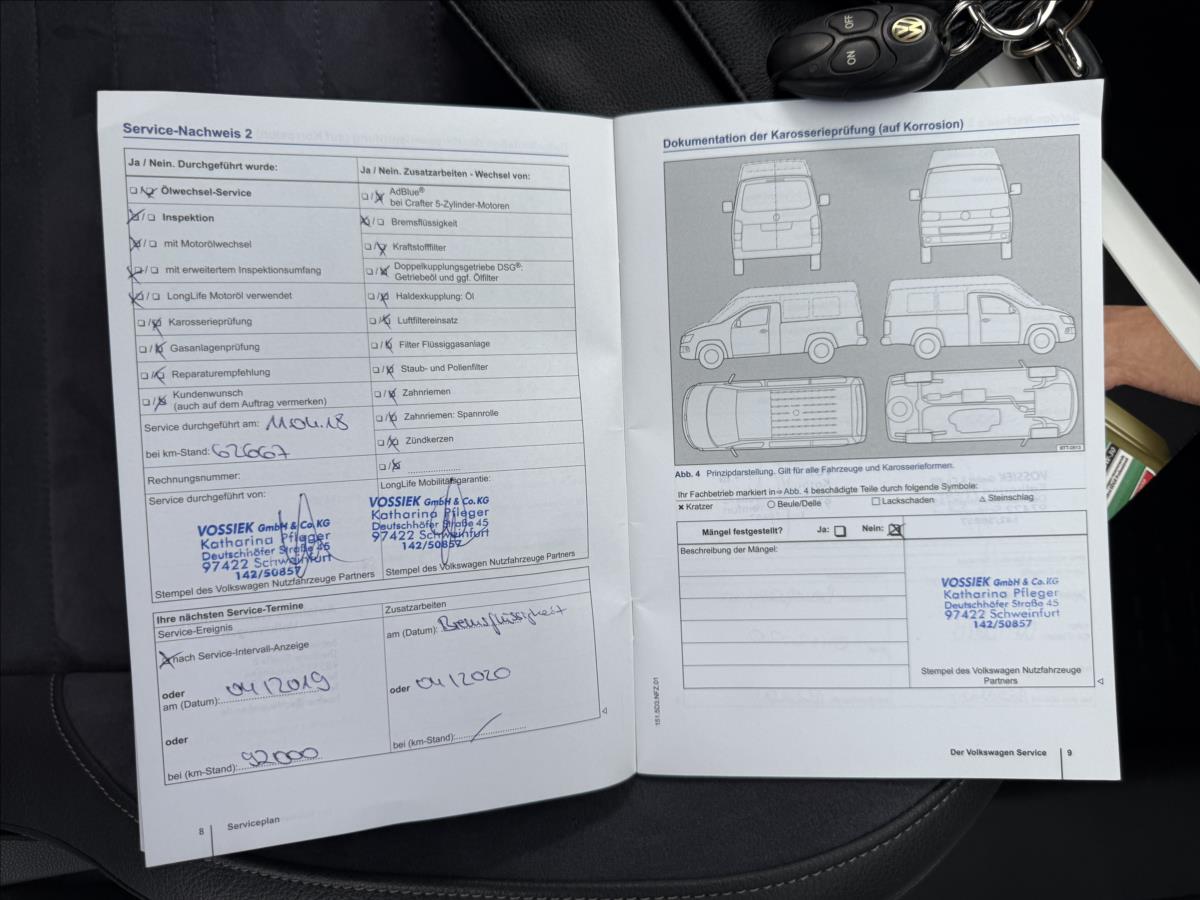 OFF
ON
Service-Nachweis 2
Ja / Nein. Durchgeführt wurde:
Ölwechsel-Service
Inspektion
mit Motorölwechsel
mit erweitertem Inspektionsumfang
LongLife Motoröl verwendet
Karosserieprüfung
Gasanlagenprüfung
Reparaturempfehlung
Kundenwunsch
(auch auf dem Auftrag vermerken)
Service durchgeführt am: 11.04.18
bei km-Stand: 62667
Rechnungsnummer:
Service durchgeführt von:
VOSSIEK GmbH & Co.KG
Katharina Pfleger
Deutschhöfer Straße 45
97422 Schweinfurt
142/50857
Stempel des Volkswagen Nutzfahrzeuge Partners
Ja / Nein. Zusatzarbeiten - Wechsel von:
AdBlue®
bei Crafter 5-Zylinder-Motoren
Bremsflüssigkeit
Kraftstofffilter
Doppelkupplungsgetriebe DSG®:
Getriebeöl und ggf. Ölfilter
Haldexkupplung: Öl
Luftfiltereinsatz
Filter Flüssiggasanlage
Staub- und Pollenfilter
Zahnriemen
Zahnriemen: Spannrolle
Zündkerzen
LongLife Mobilitätsgarantie:
VOSSIEK GmbH & Co.KG
Katharina Pfleger
Deutschhöfer Straße 45
97422 Schweinfurt
142/50857
Stempel des Volkswagen Nutzfahrzeuge Partners
Ihre nächsten Service-Termine
Service-Ereignis
nach Service-Intervall-Anzeige
oder
am (Datum): 04/2019
oder
bei (km-Stand): 92000
Zusatzarbeiten
am (Datum): Bremsflüssigkeit
oder 04/2020
bei (km-Stand):
8 Serviceplan
Dokumentation der Karosserieprüfung (auf Korrosion)
B7T-0613
Abb. 4 Prinzipdarstellung. Gilt für alle Fahrzeuge und Karosserieformen.
Ihr Fachbetrieb markiert in ⇒ Abb. 4 beschädigte Teile durch folgende Symbole:
Kratzer Beule/Delle Lackschaden Steinschlag
Mängel festgestellt? Ja: Nein:
Beschreibung der Mängel:
VOSSIEK GmbH & Co.KG
Katharina Pfleger
Deutschhöfer Straße 45
97422 Schweinfurt
142/50857
Stempel des Volkswagen Nutzfahrzeuge
Partners
151.5D3.NFZ.01
Der Volkswagen Service 9